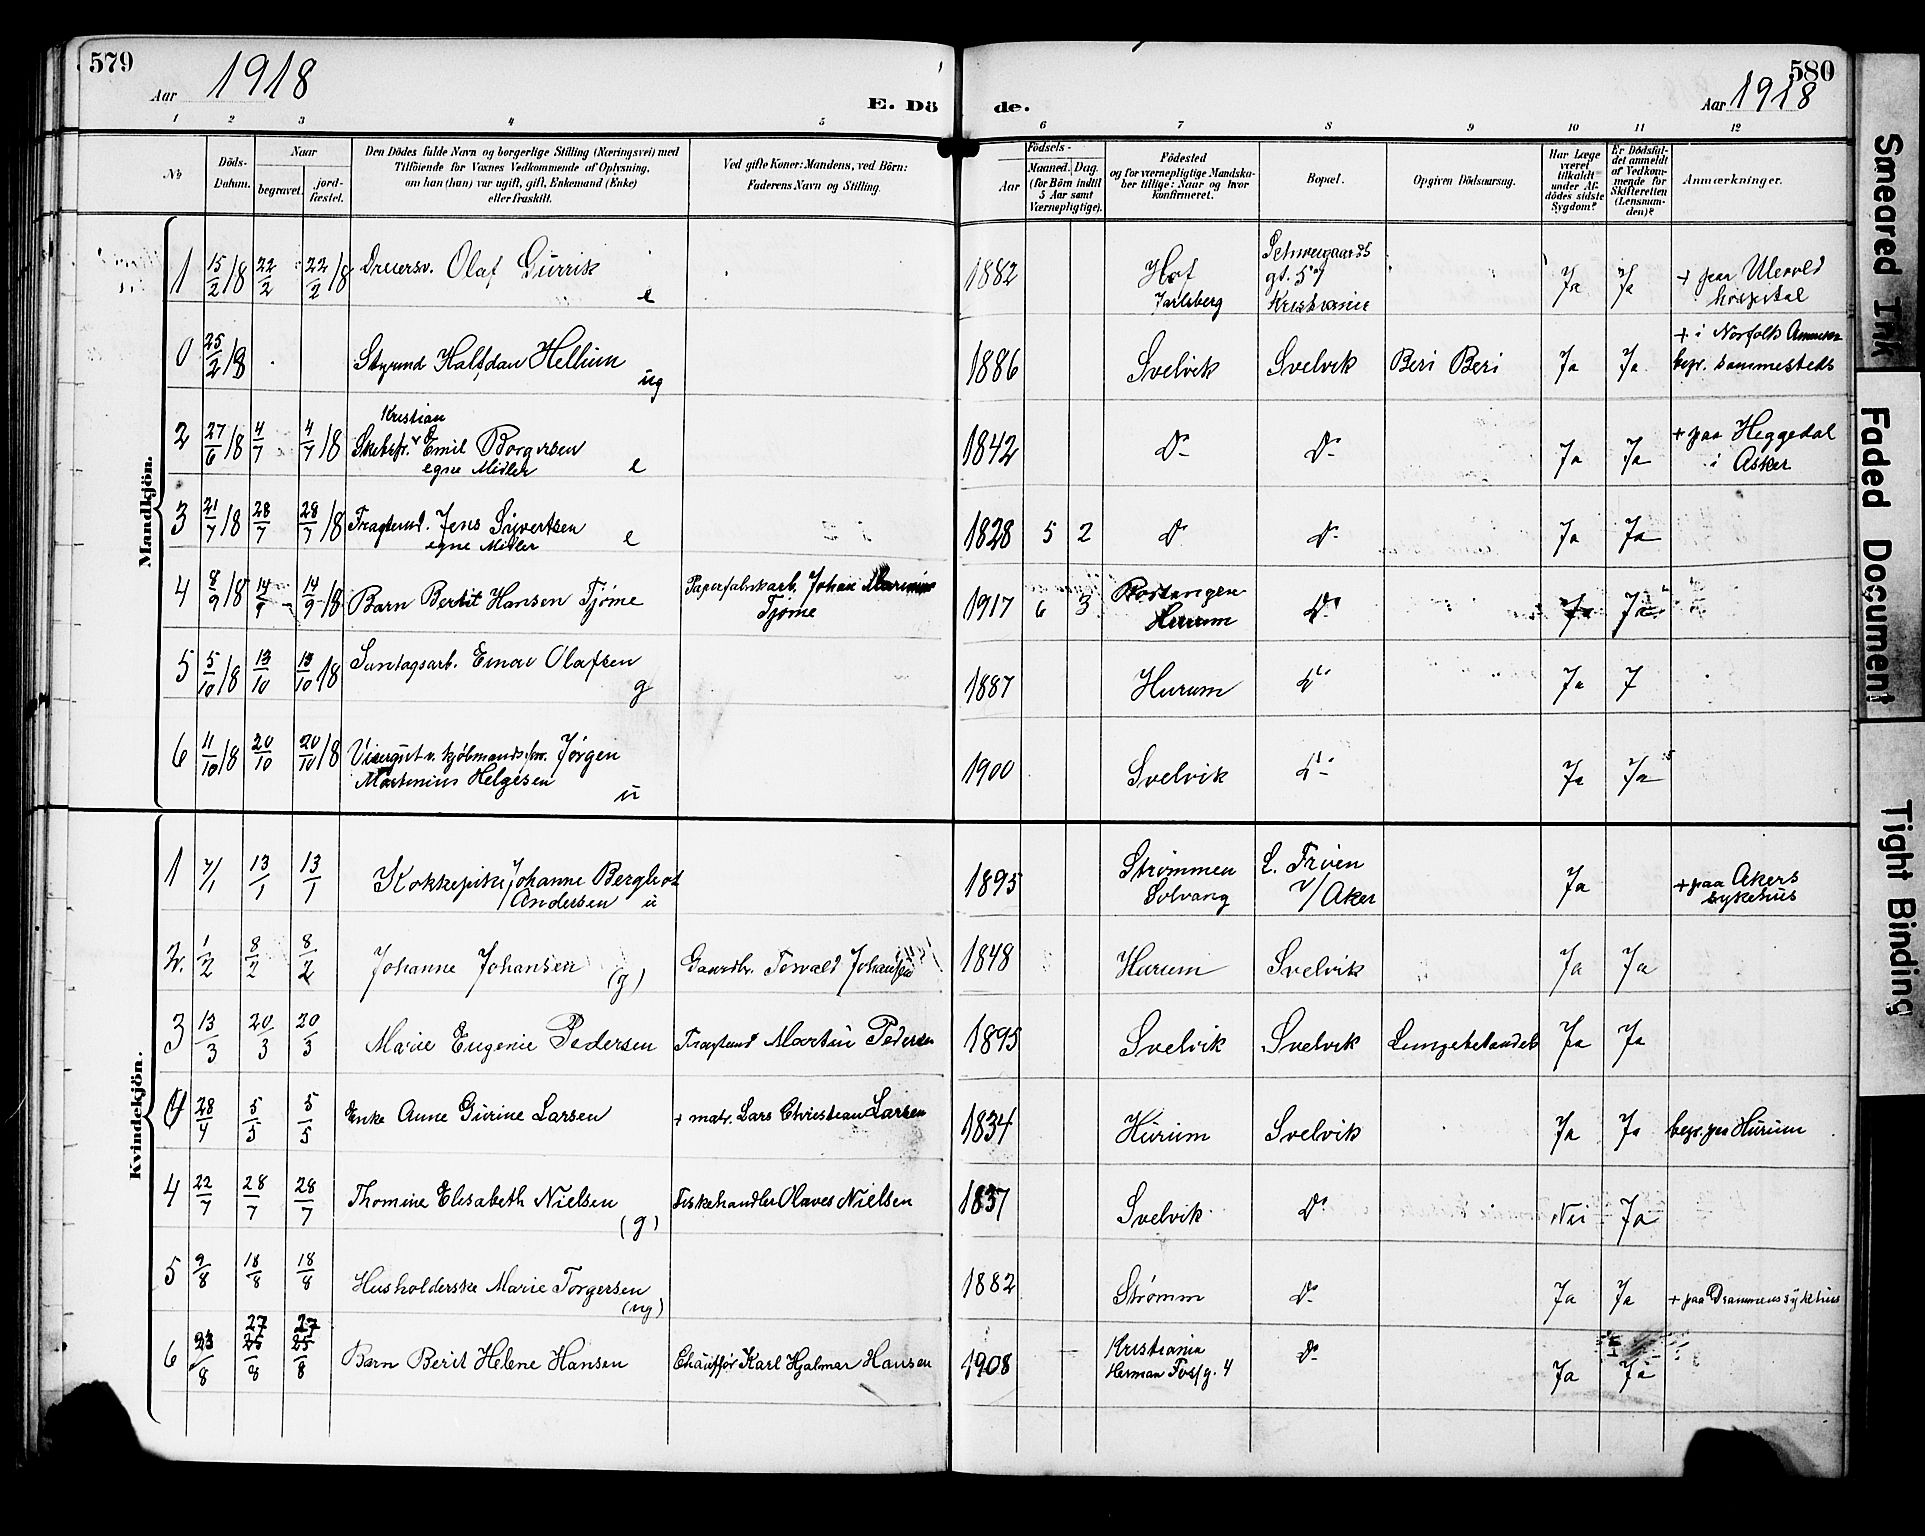 579
Aar 1918
E. Dö
de.
580
Aar 1918
1 2 3 4 5 6 7 8 9 10 11 12
No
Döds-
Datum.
Naar
begravet.
jord-
fæstet.
Den Dödes fulde Navn og borgerlige Stilling (Næringsvei) med
Tilföiende for Voxnes Vedkommende af Oplysning,
om han (hun) var ugift, gift, Enkemand (Enke)
eller fraskilt.
Ved gifte Koner: Mandens, ved Börn:
Faderens Navn og Stilling.
Födsels-
Aar
Maaned. Dag.
(for Börn indtil
5 Aar samt
Værnepligtige).
Födested
og for værnepligtige Mandska-
ber tillige: Naar og hvor
konfirmeret.
Bopæl.
Opgiven Dödsaarsag.
Har Læge
været
tilkaldt
under Af-
dödes sidste
Sygdom?
Er Dödsfal-
det anmeldt
af Vedkom-
mende for
Skifteretten
(Lensman-
den)?
Anmærkninger.
Mandkjön.
1 15/2 18 22/2 22/2 18 Olaf Gurrik e 1882 Hof Jarlsberg Schweigaards gt. Kristiania Ja Ja + paa Ullevold hospital
0 25/2 18 Styrmd Halfdan Hellum ug 1886 Svelvik Svelvik Beri Beri Ja Ja + i Norfolk Amerika begr. sammesteds
2 27/6 18 4/7 4/7 18 Skibsfr. Kristian Emil Borgersen egne Midler e 1842 Do Do Ja Ja + paa Heggedal i Asker
3 21/7 18 28/7 28/7 18 Fragtemd. Jens Sivertsen egne Midler e 1828 5 2 Do Do Ja Ja
4 8/9 18 14/9 14/9 18 Barn Berhit Hansen Tjøme Papirfabrikarb. Johan Tjøme 1917 6 3 Hurum Do Ja Ja
5 5/10 18 13/10 13/10 18 Einar Olafsen g 1887 Hurum Do Ja J
6 11/10 18 20/10 20/10 18 Visergut v. kjøbmandsfor. Jørgen Martinius Helgesen u 1900 Svelvik Do Ja Ja
Kvindekjön.
1 7/1 13/1 13/1 Kokkepike Johanne Bergliot Andersen u 1895 Strømmen Solvang L. Frøen V/ Aker Ja + paa Akers sykehus
2. 1/2 8/2 8/2 Johanne Johansen (g) Gaardbr. Torvald Johansen 1848 Hurum Svelvik Ja Ja
3 13/3 20/3 20/3 Marie Eugenie Pedersen Fragtemd Martin Pedersen 1895 Svelvik Svelvik Lungebetændels Ja Ja
0 28/4 5/5 5/5 Enke Anne Gurine Larsen + matr. Lars Christian Larsen 1834 Hurum Svelvik Ja Ja begr. paa Hurum
4 22/7 28/7 28/7 Thomine Elisabeth Nielsen (g) Fiskehandler Olaves Nielsen 1837 Svelvik Do Nei Ja
5 9/8 18/8 18/8 Husholderske Marie Torgersen (ug) 1882 Strømm Do Ja Ja + paa Drammens sykehus
6 23/8 27 25/8 27 25/8 Barn Berit Helene Hansen Chauffør Karl Hjalmar Hansen 1908 Kristiania Herman Fossg. 4 Do Ja Ja
Smeared Ink
Faded Document
Tight Binding